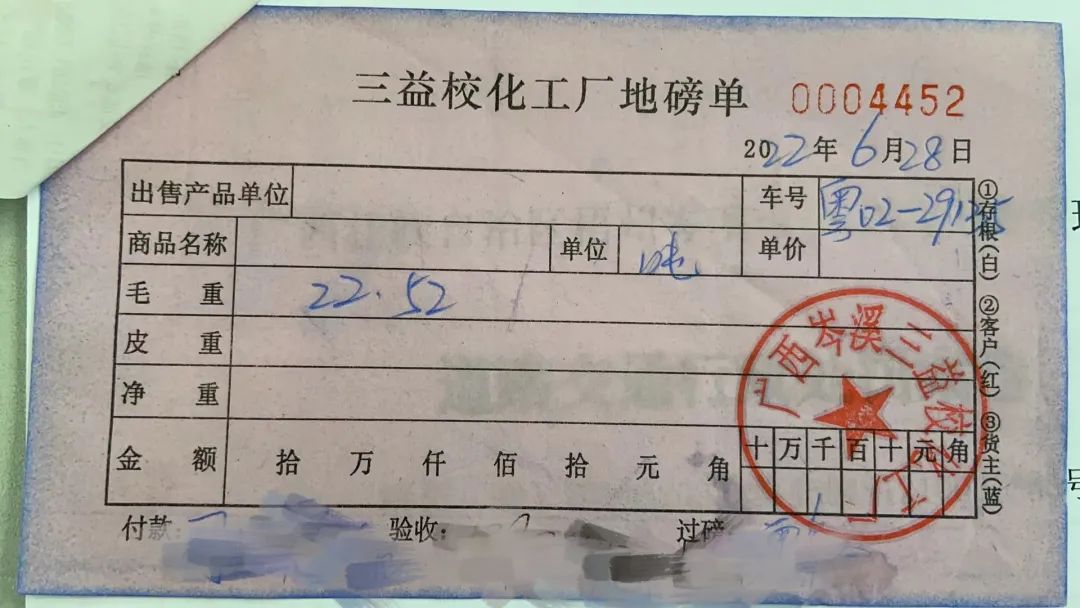 三益校化工厂地磅单 0004452
2022年6月28日
出售产品单位 车号 粤02-29125
商品名称 单位 吨 单价
毛重 22.52
皮重
净重
金额 拾 万 仟 佰 拾 元 角 十 万 千 百 十 元 角
付款 验收: 过磅
①存根(白) ②客户(红) ③货主(蓝)
广西岑溪三益校化工厂
号